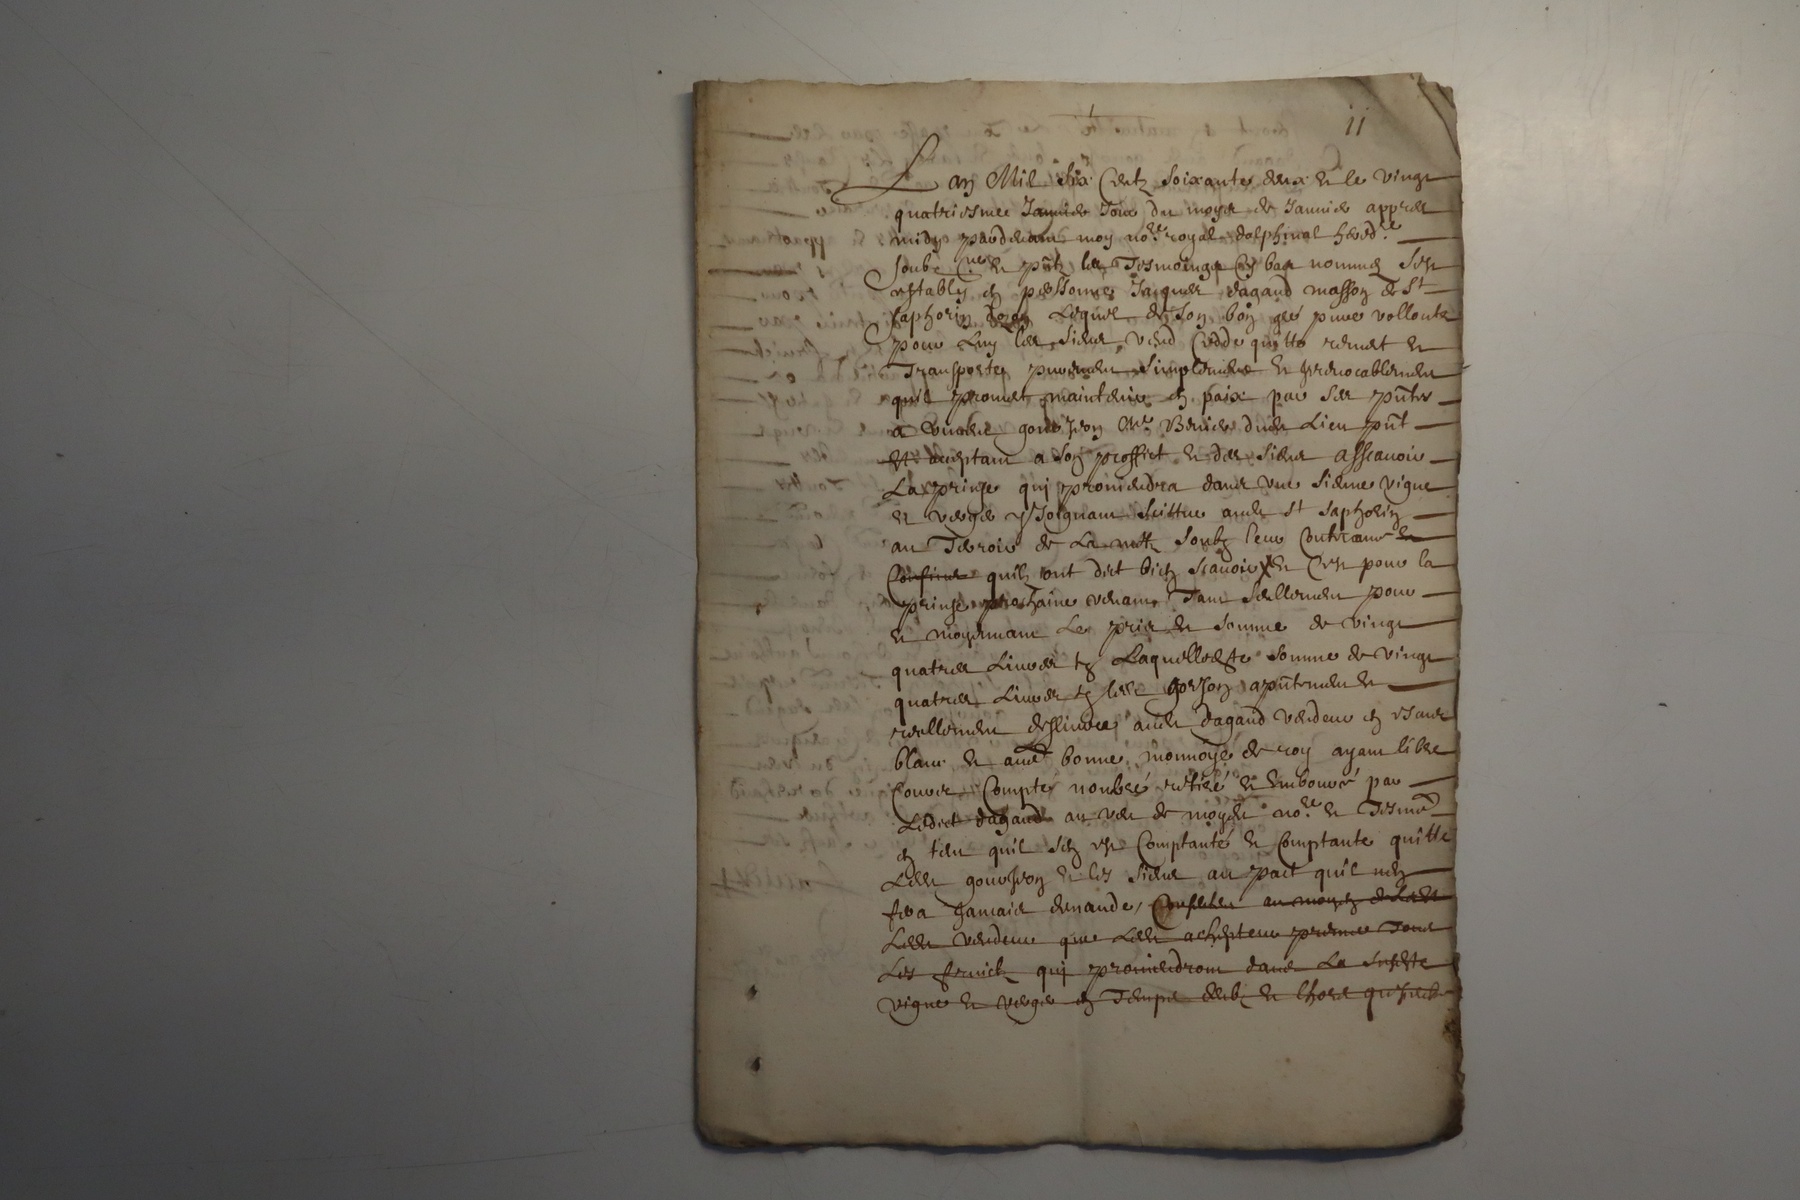 11
Lan Mil Six Centz Soixante deux et le vingt
quatriesme Janvier Jour du moys de Janvier appres
midy pardevant moy no.re royal dalphinal hered.re
Soubz.né et pñtz les Tesmoings Cy bas nommez Sest
estably en personne Jacques dagand masson de St
saphorin Lequel de son bon gré pure vollonté
pour Luy les siens, vend Cedde quitte remet et
Transporte purement Simplement et Irrevocablement
quil promet maintenir en paix par Ses pñtes
a mre Vernier dudt Lieu pñt
Et acceptant a son proffict et des siens assavoir
La prinse qui proviendra dans une sienne vigne
et verger y Joignant Scittue audt St Saphorin
au Terroir de La Soubz leur
Confins quilz ont dict bien scavoir et Cest pour la
prinse prochaine venant Tant Seullement pour
et moyennant Le pris et Somme de vingt
quatre Livres tz Laquelle Somme de vingt
quatre Livres tz ledt apñtement et
reellement deslivré audt dagand vendeur en
blanc et autre bonne monnoye de roy ayant libre
Cours Compté nombré retiré et Emboursé par
Ledict dagand au veu de moydt no.re et Tesmo
en tant quil sen est Contanté et Comptante quitte
Ledt et les siens au pact quil nen
fera Jamais demande,
Ledt vendeur que Ledt achepteur prenne Tous
Les fruictz qui proviendront dans La Susdte
vigne et verger en Temps deub et